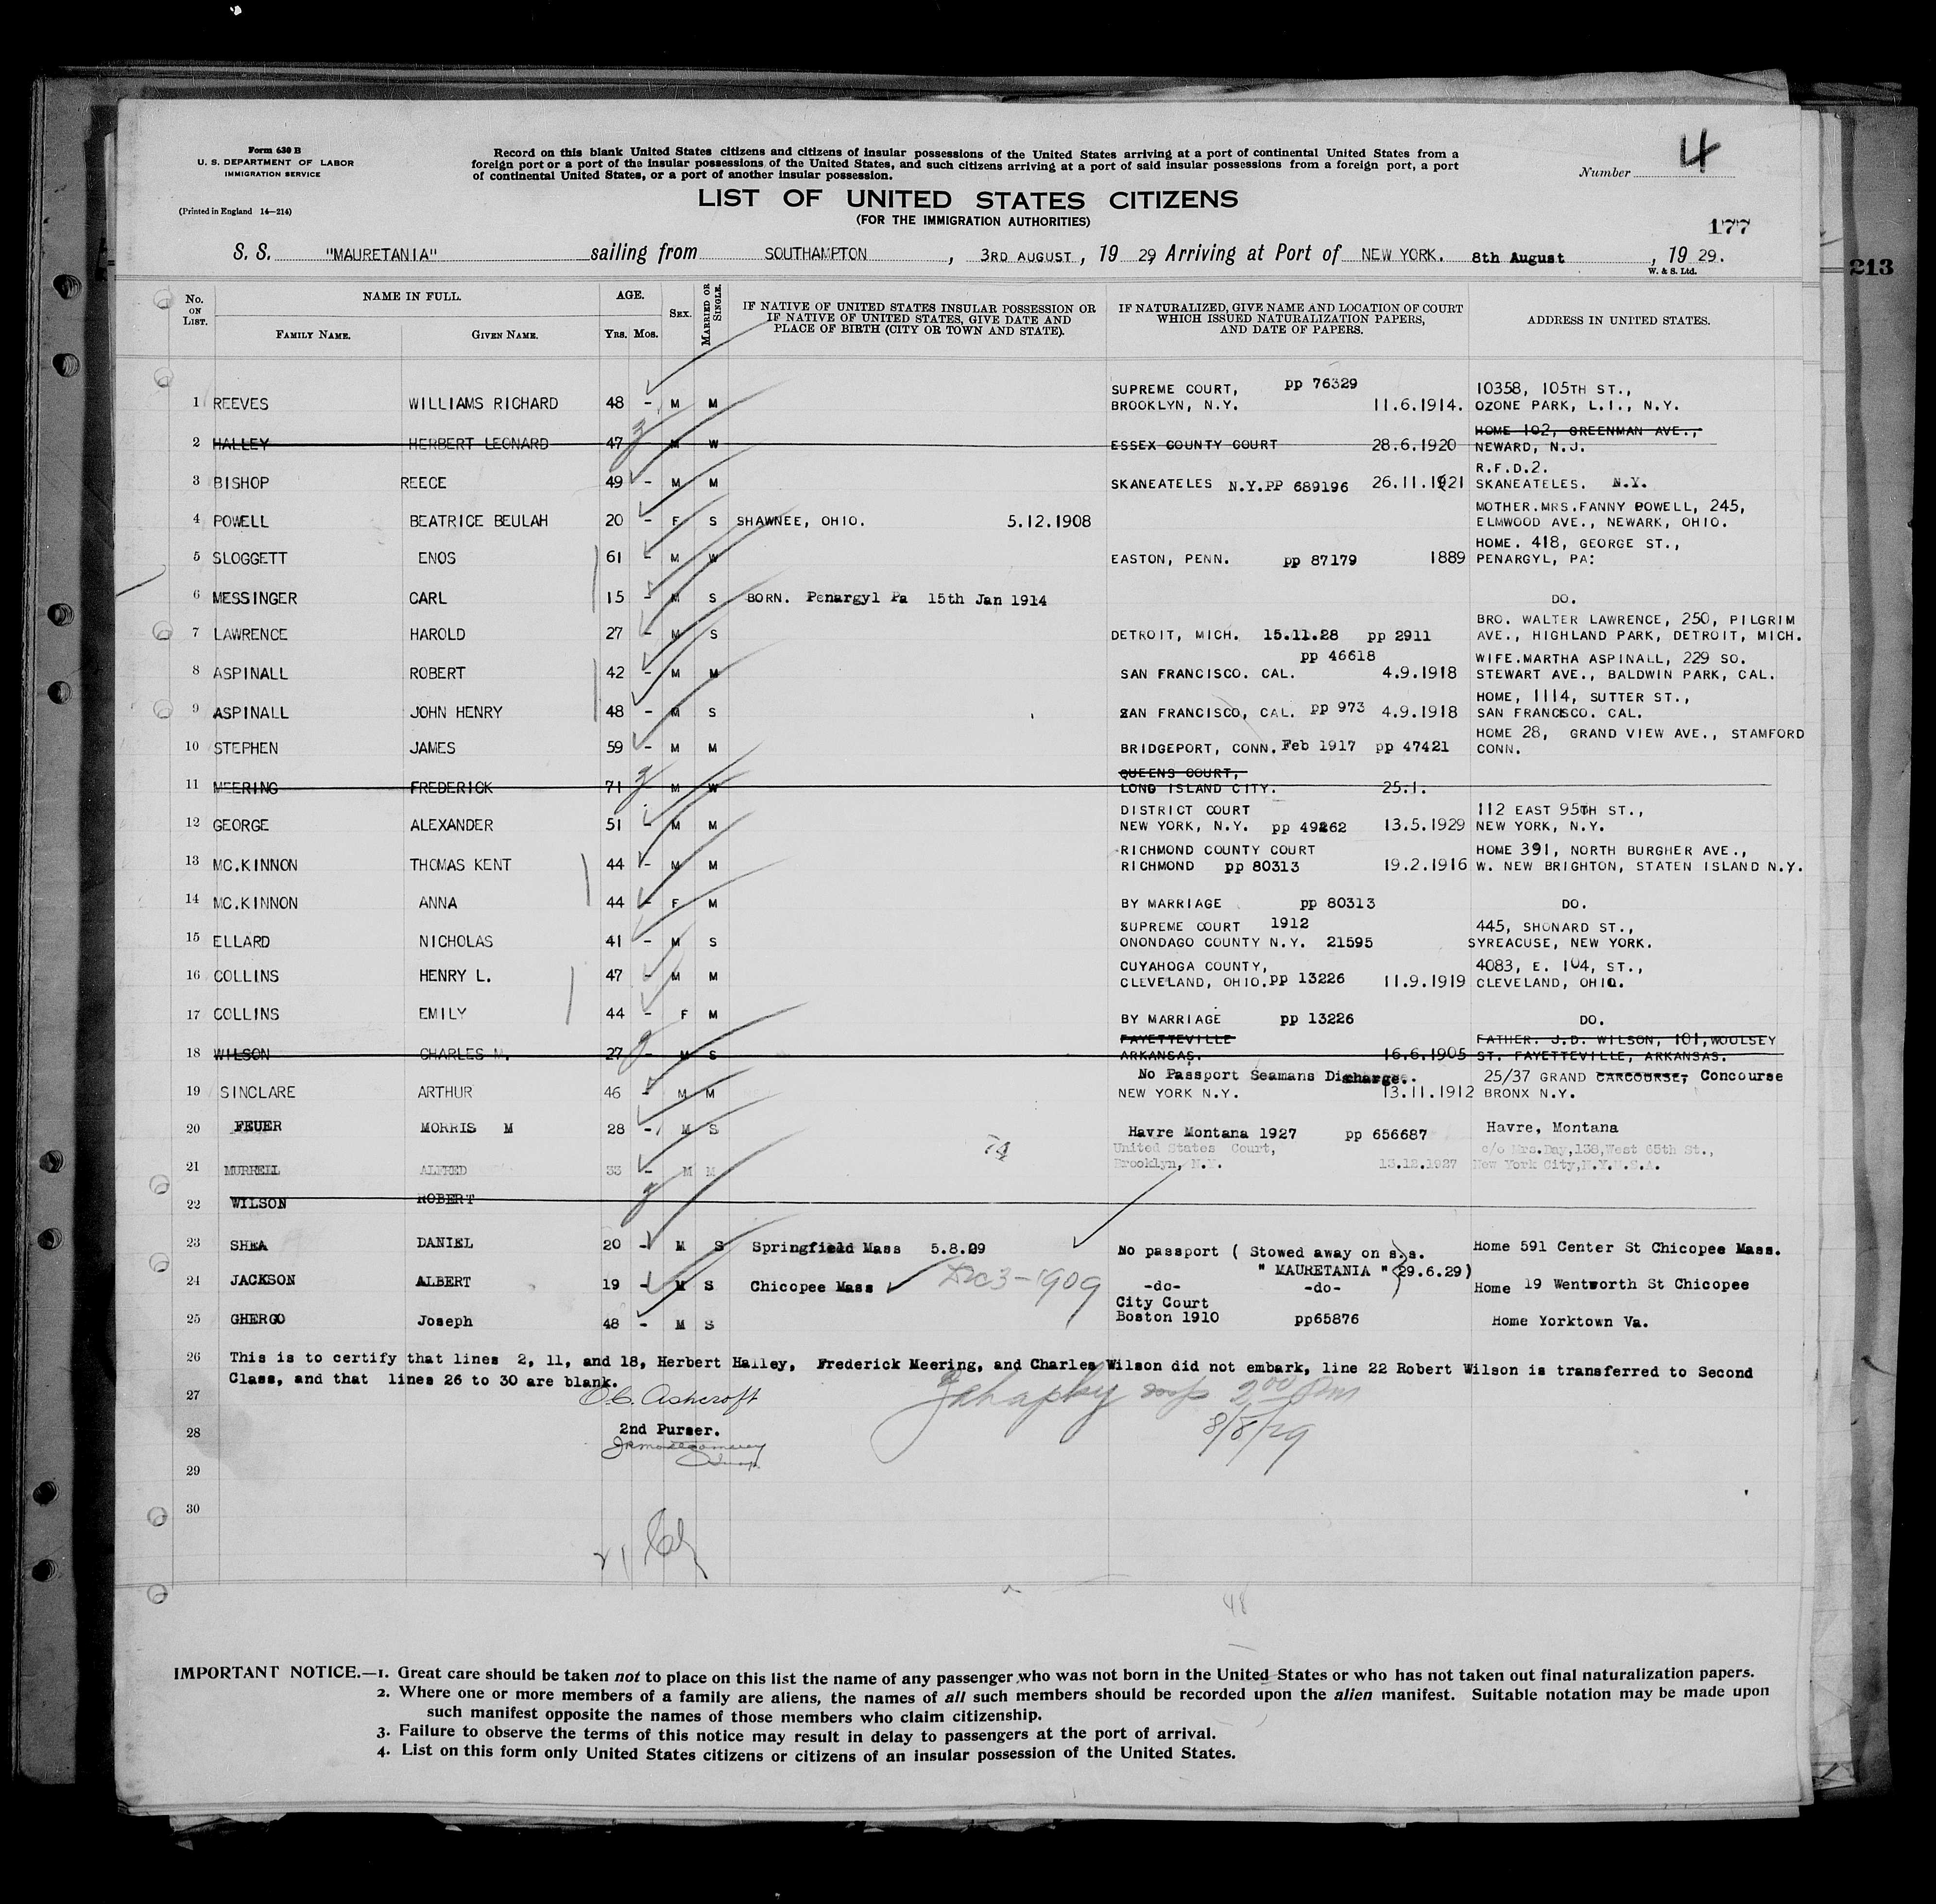 Form 630 B
U. S. DEPARTMENT OF LABOR
IMMIGRATION SERVICE
(Printed in England 14—214)
Record on this blank United States citizens and citizens of insular possessions of the United States arriving at a port of continental United States from a
foreign port or a port of the insular possessions of the United States, and such citizens arriving at a port of said insular possessions from a foreign port, a port
of continental United States, or a port of another insular possession.
Number 4
LIST OF UNITED STATES CITIZENS
(FOR THE IMMIGRATION AUTHORITIES)
177
213
S. S. "MAURETANIA" sailing from SOUTHAMPTON , 3RD AUGUST , 19 29, Arriving at Port of NEW YORK. 8th August , 19 29.
W. & S. Ltd.
No. ON LIST. NAME IN FULL. FAMILY NAME. GIVEN NAME. AGE. Yrs. Mos. SEX. MARRIED OR SINGLE.
IF NATIVE OF UNITED STATES INSULAR POSSESSION OR
IF NATIVE OF UNITED STATES, GIVE DATE AND
PLACE OF BIRTH (CITY OR TOWN AND STATE).
IF NATURALIZED, GIVE NAME AND LOCATION OF COURT
WHICH ISSUED NATURALIZATION PAPERS,
AND DATE OF PAPERS.
ADDRESS IN UNITED STATES.
SUPREME COURT, pp 76329 10358, 105TH ST.,
1 REEVES WILLIAMS RICHARD 48 - M M BROOKLYN, N.Y. 11.6.1914. OZONE PARK, L.I., N.Y.
HOME 102, GREENMAN AVE.,
2 HALLEY HERBERT LEONARD 47 M W ESSEX COUNTY COURT 28.6.1920 NEWARD, N.J.
R.F.D.2.
3 BISHOP REECE 49 - M M SKANEATELES N.Y.PP 689196 26.11.1921 SKANEATELES. N.Y.
MOTHER.MRS.FANNY POWELL, 245,
4 POWELL BEATRICE BEULAH 20 - F S SHAWNEE, OHIO. 5.12.1908 ELMWOOD AVE., NEWARK, OHIO.
HOME. 418, GEORGE ST.,
5 SLOGGETT ENOS 61 - M W EASTON, PENN. pp 87179 1889 PENARGYL, PA:
6 MESSINGER CARL 15 - M S BORN. Penargyl Pa 15th Jan 1914 DO.
BRO. WALTER LAWRENCE, 250, PILGRIM
7 LAWRENCE HAROLD 27 - M S DETROIT, MICH. 15.11.28 pp 2911 AVE., HIGHLAND PARK, DETROIT, MICH.
pp 46618 WIFE.MARTHA ASPINALL, 229 SO.
8 ASPINALL ROBERT 42 - M M SAN FRANCISCO. CAL. 4.9.1918 STEWART AVE., BALDWIN PARK, CAL.
HOME, 1114, SUTTER ST.,
9 ASPINALL JOHN HENRY 48 - M S SAN FRANCISCO, CAL. pp 973 4.9.1918 SAN FRANCISCO. CAL.
HOME 28, GRAND VIEW AVE., STAMFORD
10 STEPHEN JAMES 59 - M M BRIDGEPORT, CONN. Feb 1917 pp 47421 CONN.
QUEENS COURT,
11 MEERING FREDERICK 71 M W LONG ISLAND CITY. 25.1.
DISTRICT COURT 112 EAST 95TH ST.,
12 GEORGE ALEXANDER 51 - M M NEW YORK, N.Y. pp 49262 13.5.1929 NEW YORK, N.Y.
RICHMOND COUNTY COURT HOME 391, NORTH BURGHER AVE.,
13 MC.KINNON THOMAS KENT 44 - M M RICHMOND pp 80313 19.2.1916 W. NEW BRIGHTON, STATEN ISLAND N.Y.
14 MC.KINNON ANNA 44 - F M BY MARRIAGE pp 80313 DO.
SUPREME COURT 1912 445, SHONARD ST.,
15 ELLARD NICHOLAS 41 - M S ONONDAGO COUNTY N.Y. 21595 SYREACUSE, NEW YORK.
CUYAHOGA COUNTY, 4083, E. 104, ST.,
16 COLLINS HENRY L. 47 - M M CLEVELAND, OHIO. pp 13226 11.9.1919 CLEVELAND, OHIO.
17 COLLINS EMILY 44 - F M BY MARRIAGE pp 13226 DO.
FAYETTEVILLE FATHER. J.D. WILSON, 101, WOOLSEY
18 WILSON CHARLES M. 27 - M S ARKANSAS. 16.6.1905 ST. FAYETTEVILLE, ARKANSAS.
No Passport Seamans Discharge. 25/37 GRAND CARCOURSE, Concourse
19 SINCLARE ARTHUR 46 - M M NEW YORK N.Y. 13.11.1912 BRONX N.Y.
20 FEUER MORRIS M 28 - M S Havre Montana 1927 pp 656687 Havre, Montana
United States Court, c/o Mrs.Day,138,West 65th St.,
21 MURRELL ALFRED 33 - M M Brooklyn, N.Y. 13.12.1927 New York City,N.Y.U.S.A.
22 WILSON ROBERT
23 SHEA DANIEL 20 - M S Springfield Mass 5.8.09 No passport ( Stowed away on s.s. Home 591 Center St Chicopee Mass.
" MAURETANIA " 29.6.29)
24 JACKSON ALBERT 19 - M S Chicopee Mass Dec 3-1909 -do- -do- Home 19 Wentworth St Chicopee
City Court
25 GHERGO Joseph 48 - M S Boston 1910 pp65876 Home Yorktown Va.
26 This is to certify that lines 2, 11, and 18, Herbert Halley, Frederick Meering, and Charles Wilson did not embark, line 22 Robert Wilson is transferred to Second
Class, and that lines 26 to 30 are blank.
27 O.C. Ashcroft 2 00 Pm
28 2nd Purser. 8/8/29
29
30
21
48
IMPORTANT NOTICE.—1. Great care should be taken not to place on this list the name of any passenger who was not born in the United States or who has not taken out final naturalization papers.
2. Where one or more members of a family are aliens, the names of all such members should be recorded upon the alien manifest. Suitable notation may be made upon
such manifest opposite the names of those members who claim citizenship.
3. Failure to observe the terms of this notice may result in delay to passengers at the port of arrival.
4. List on this form only United States citizens or citizens of an insular possession of the United States.